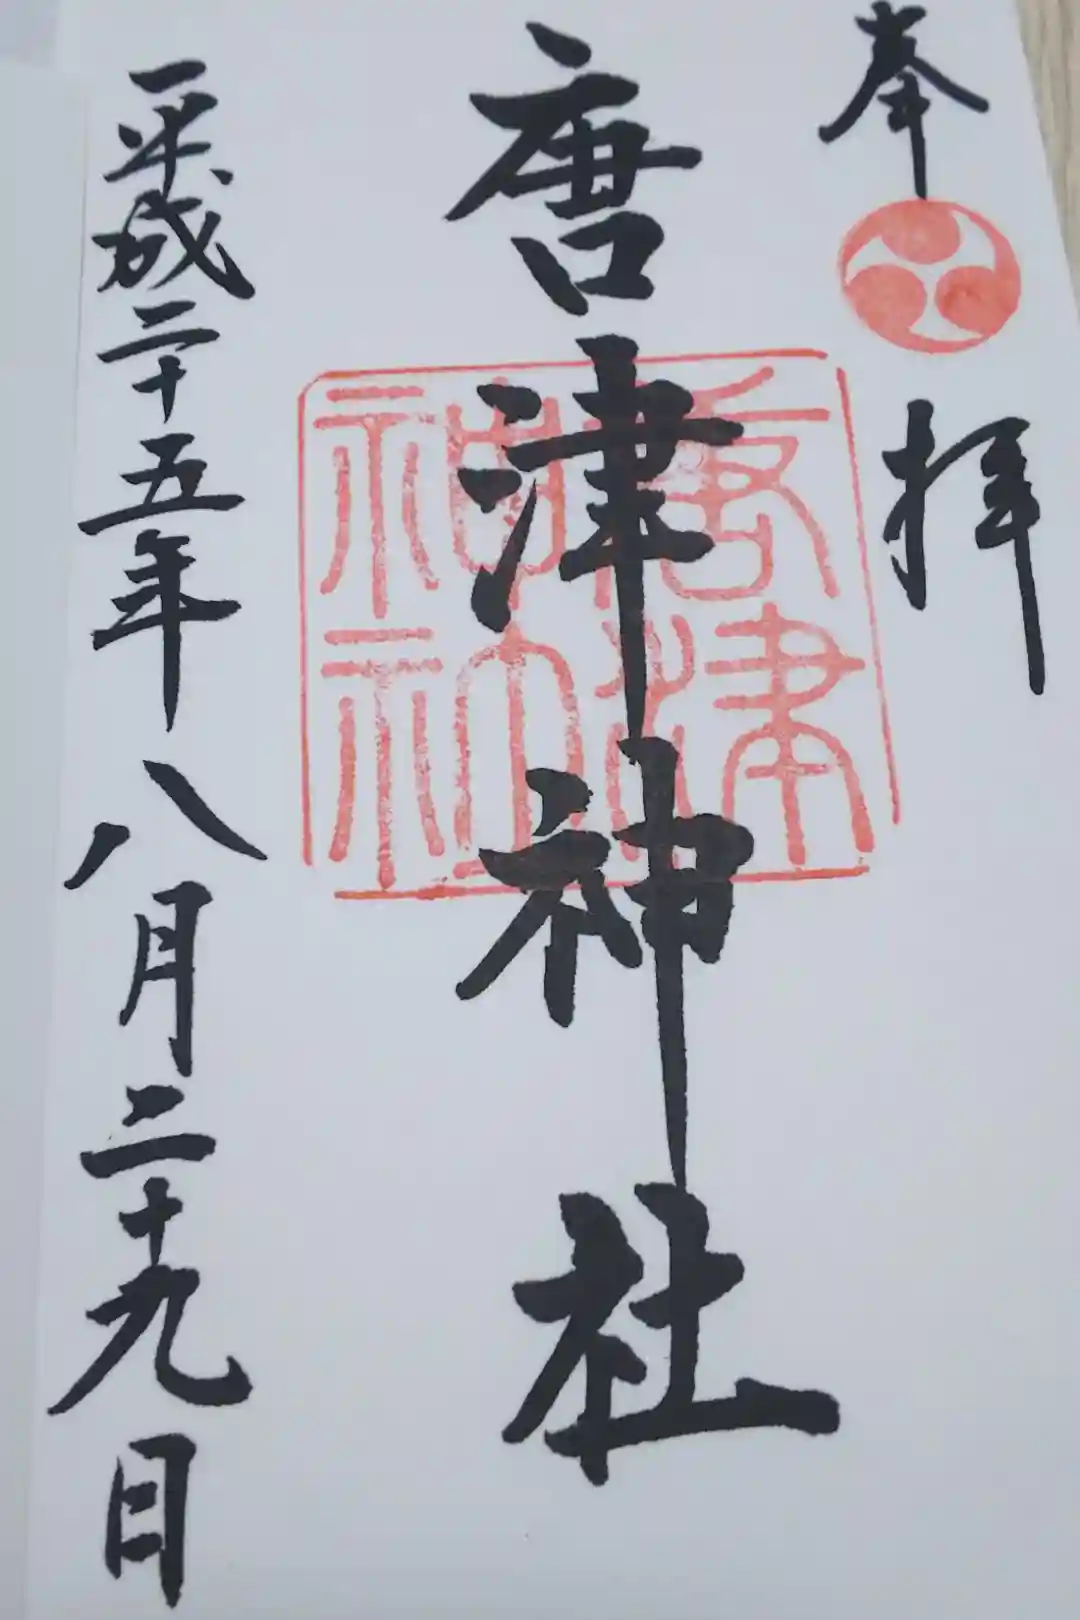 奉拝
唐津神社
唐津
神社
平成二十五年八月二十九日